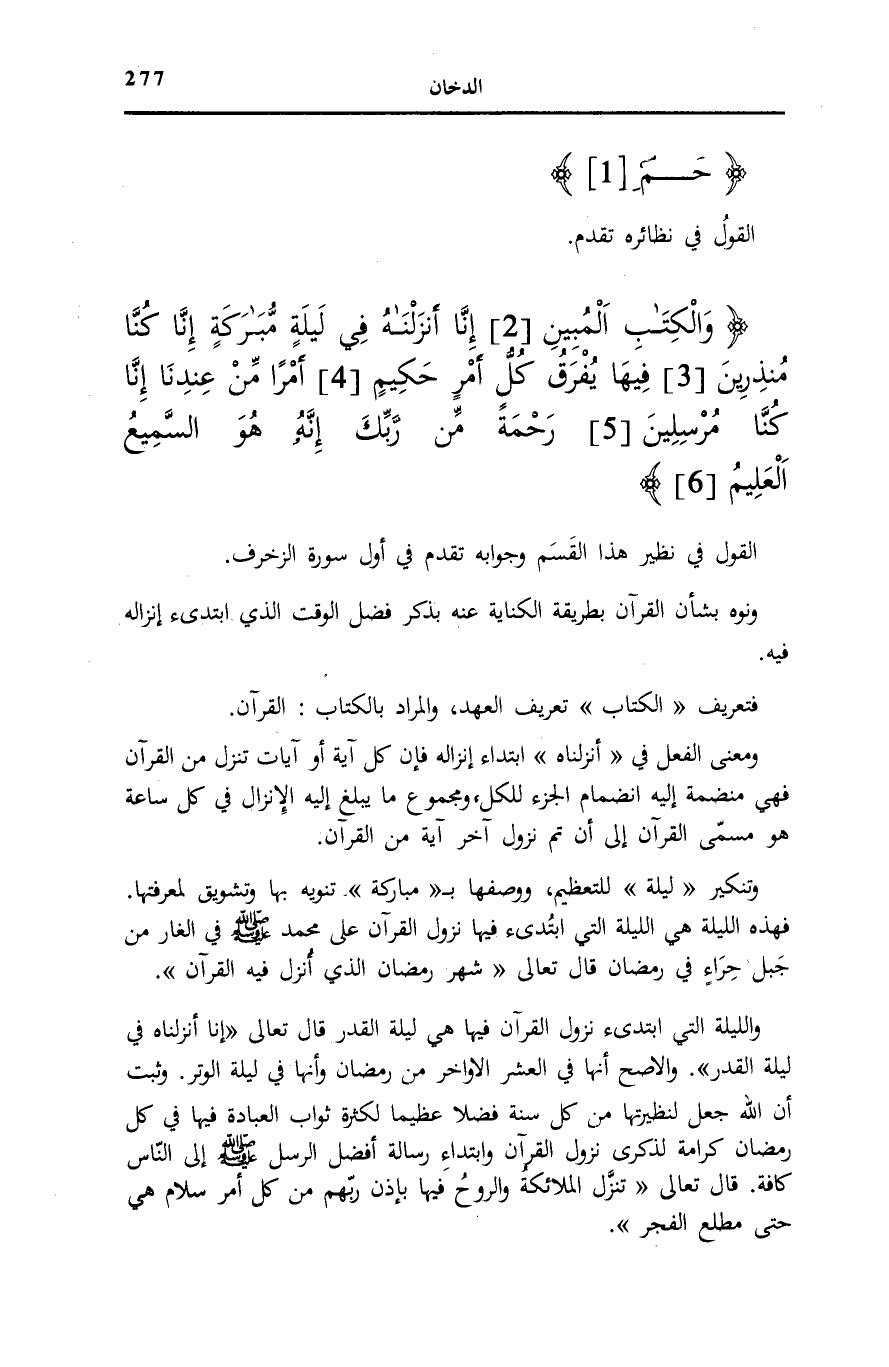 277
الدخان
﴿ حَـمٓ [1] ﴾
القولُ في نظائره تقدم.
﴿ وَالْكِتَـٰبِ اَلْمُبِينِ [2] إِنَّا أَنزَلْنَـٰهُ فِي لَيلَةٍ مُّبَـٰرَكَةٍ إِنَّا كُنَّا
مُنذِرِينَ [3] فِيهَا يُفْرَقُ كُلُّ أَمْرٍ حَكِيمٍ [4] أَمْرًا مِّنْ عِندِنَا إِنَّا
كُنَّا مُرْسِلِينَ [5] رَحْمَةً مِّن رَّبِّكَ إِنَّهُۥ هُوَ السَّمِيعُ
اَلْعَلِيمُ [6] ﴾
القول في نظير هذا القَسَم وجوابه تقدم في أول سورة الزخرف.
ونوه بشأن القرآن بطريقة الكناية عنه بذكر فضل الوقت الذي ابتدىء إنزاله
فيه.
فتعريف « الكتاب » تعريف العهد، والمراد بالكتاب : القرآن.
ومعنى الفعل في « أنزلناه » ابتداء إنزاله فإن كل آية أو آيات تنزل من القرآن
فهي منضمة إليه انضمام الجزء للكل، ومجموع ما يبلغ إليه الإنزال في كل ساعة
هو مسمّى القرآن إلى أن تم نزول آخر آية من القرآن.
وتنكير « ليلة » للتعظيم، ووصفها بـ« مباركة » تنويه بها وتشويق لمعرفتها.
فهذه الليلة هي الليلة التي ابتُدىء فيها نزول القرآن على محمد ﷺ في الغار من
جَبل حِرَاءٍ في رمضان قال تعالى « شهر رمضان الذي أُنزل فيه القرآن ».
والليلة التي ابتدىء نزول القرآن فيها هي ليلة القدر قال تعالى «إنا أنزلناه في
ليلة القدر». والاصح أنها في العشر الاواخر من رمضان وأنها في ليلة الوتر. وثبت
أن الله جعل لنظيرتها من كل سنة فضلا عظيما لكثرة ثواب العبادة فيها في كل
رمضان كرامة لذكرى نزول القرآن وابتداء رسالة أفضل الرسل ﷺ إلى النّاس
كافة. قال تعالى « تنزَّل الملائكةُ والروحُ فيها بإذن ربّهم من كل أمر سلام هي
حتى مطلع الفجر ».